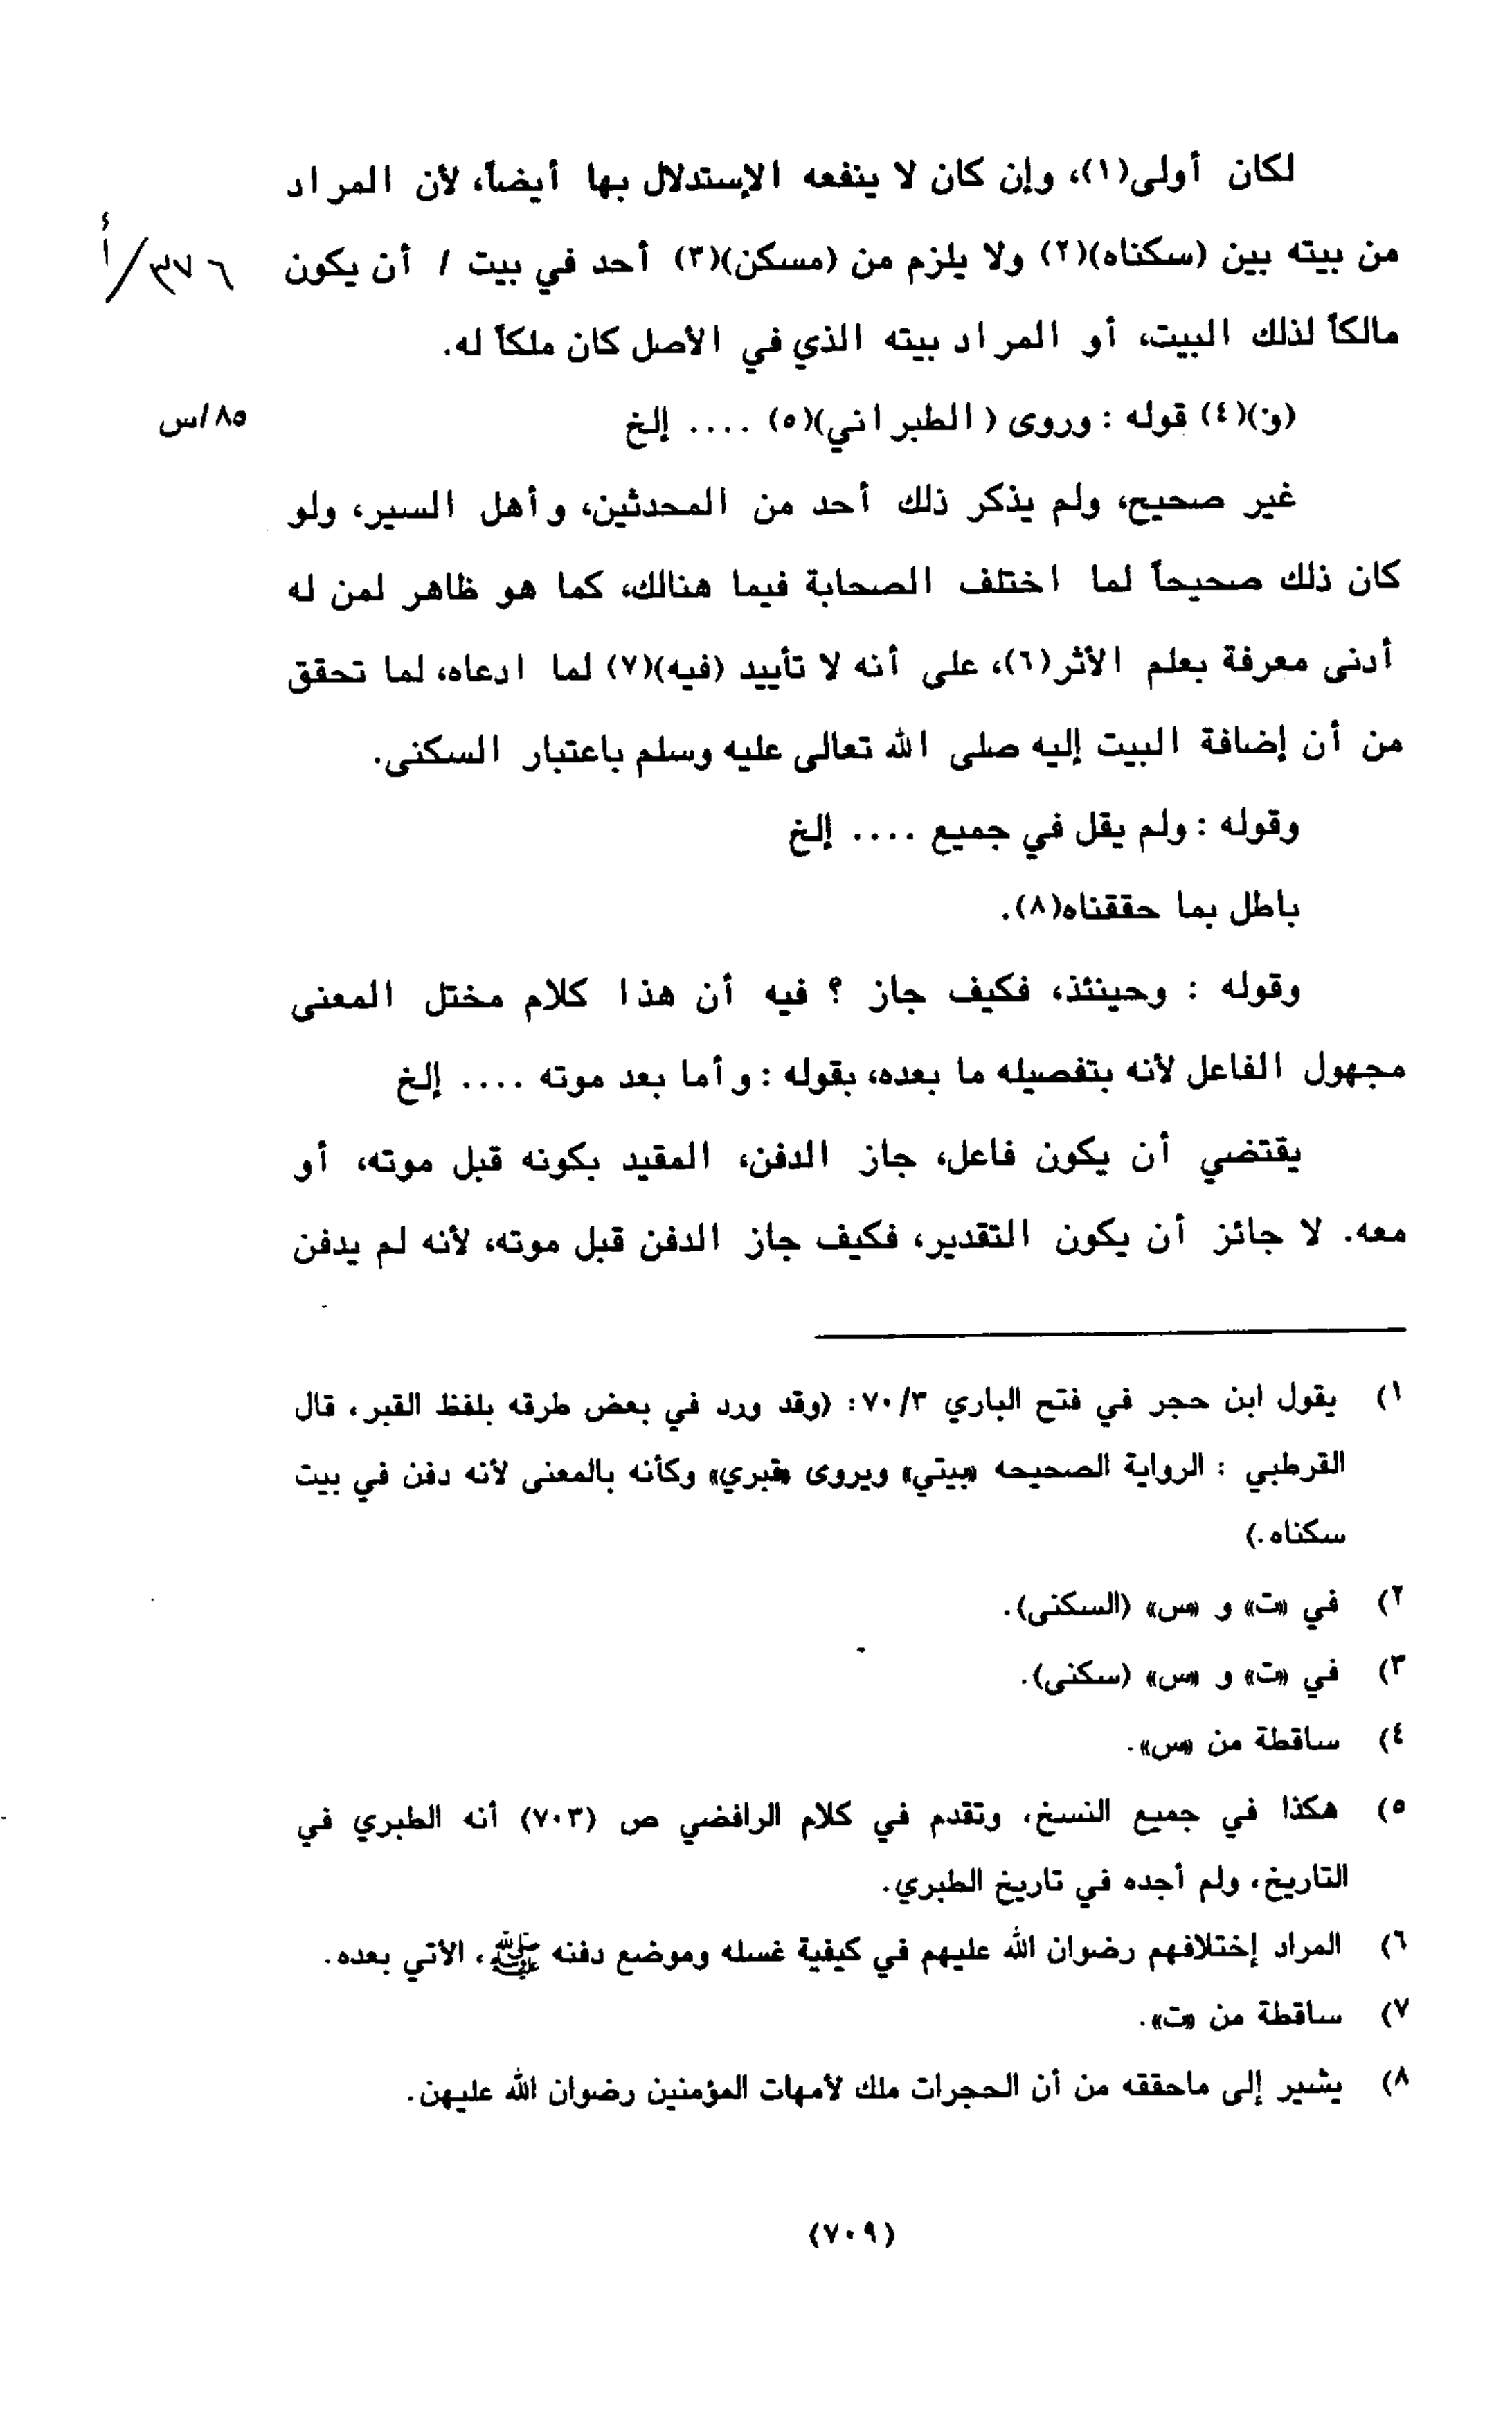 لكان أولى(١)، وإن كان لا ينفعه الإستدلال بها أيضاً، لأن المراد
من بيته بين (سكناه)(٢) ولا يلزم من (مسكن)(٣) أحد في بيت / أن يكون
٣٧٦/أ
مالكاً لذلك البيت، أو المراد بيته الذي في الأصل كان ملكاً له.
(و)(٤) قوله : وروى (الطبراني)(٥) .... إلخ
٨٥/س
غير صحيح، ولم يذكر ذلك أحد من المحدثين، وأهل السير، ولو
كان ذلك صحيحاً لما اختلف الصحابة فيما هنالك، كما هو ظاهر لمن له
أدنى معرفة بعلم الأثر(٦)، على أنه لا تأييد (فيه)(٧) لما ادعاه، لما تحقق
من أن إضافة البيت إليه صلى الله تعالى عليه وسلم باعتبار السكنى.
وقوله : ولم يقل في جميع .... إلخ
باطل بما حققناه(٨).
وقوله : وحينئذ، فكيف جاز ؟ فيه أن هذا كلام مختل المعنى
مجهول الفاعل لأنه بتفصيله ما بعده، بقوله : وأما بعد موته .... إلخ
يقتضي أن يكون فاعل، جاز الدفن، المقيد بكونه قبل موته، أو
معه. لا جائز أن يكون التقدير، فكيف جاز الدفن قبل موته، لأنه لم يدفن
١) يقول ابن حجر في فتح الباري ٧٠/٣: (وقد ورد في بعض طرقه بلفظ القبر، قال
القرطبي : الرواية الصحيحه «بيتي» ويروى «قبري» وكأنه بالمعنى لأنه دفن في بيت
سكناه.)
٢) في «ت» و «س» (السكنى).
٣) في «ت» و «س» (سكنى).
٤) ساقطة من «س».
٥) هكذا في جميع النسخ، وتقدم في كلام الرافضي ص (٧٠٣) أنه الطبري في
التاريخ، ولم أجده في تاريخ الطبري.
٦) المراد إختلافهم رضوان الله عليهم في كيفية غسله وموضع دفنه ﷺ، الآتي بعده.
٧) ساقطة من «ت».
٨) يشير إلى ماحققه من أن الحجرات ملك لأمهات المؤمنين رضوان الله عليهن.
(٧٠٩)